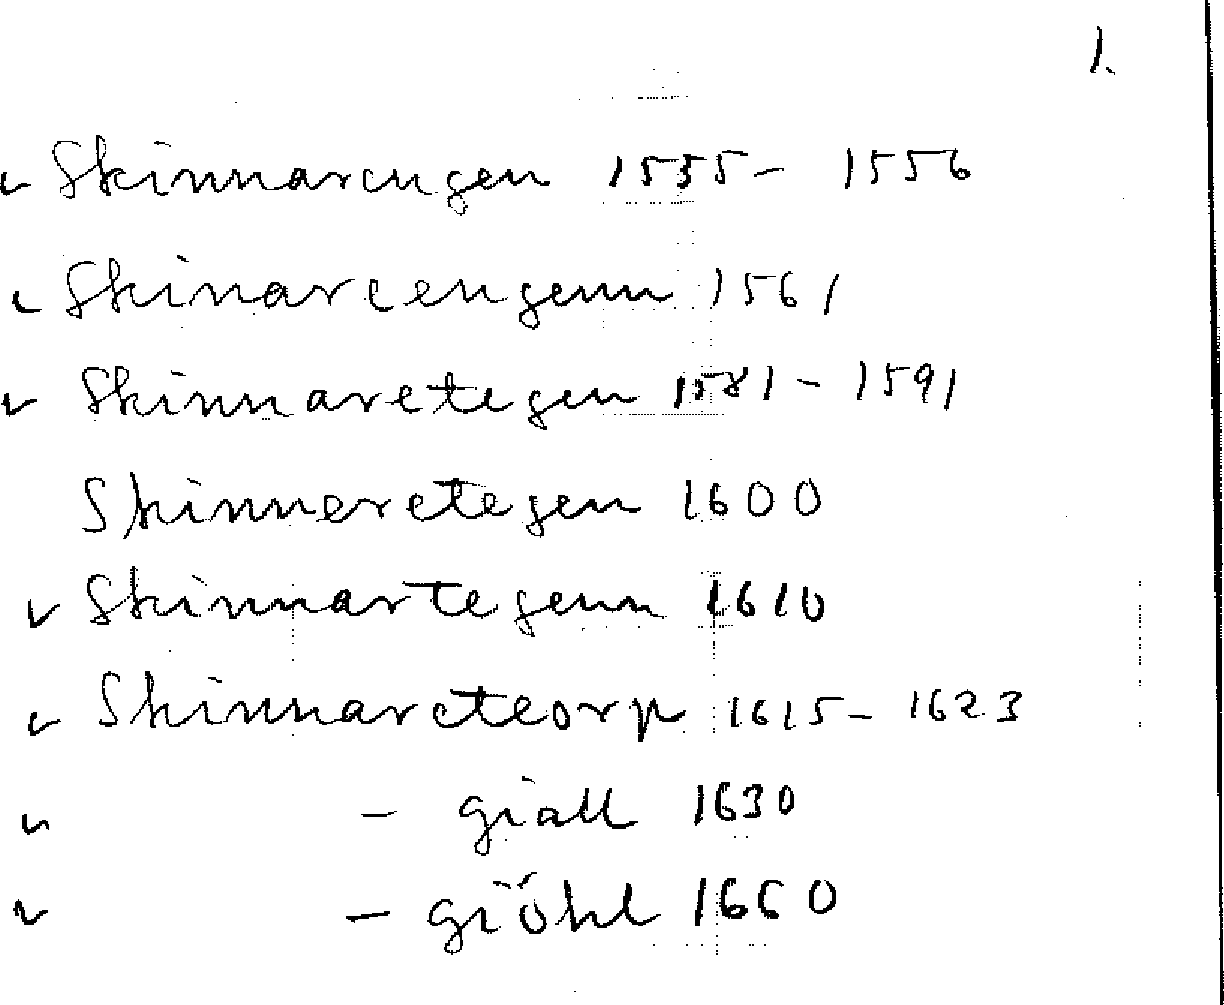 1.
Skinnarengen 1555 - 1556
Skinareengenn 1561
Skinnaretegen 1581 - 1591
Skinneretegen 1600
Skinnartegenn 1610
Skinnareteorp 1615 - 1623
- giall 1630
- giöhl 1660